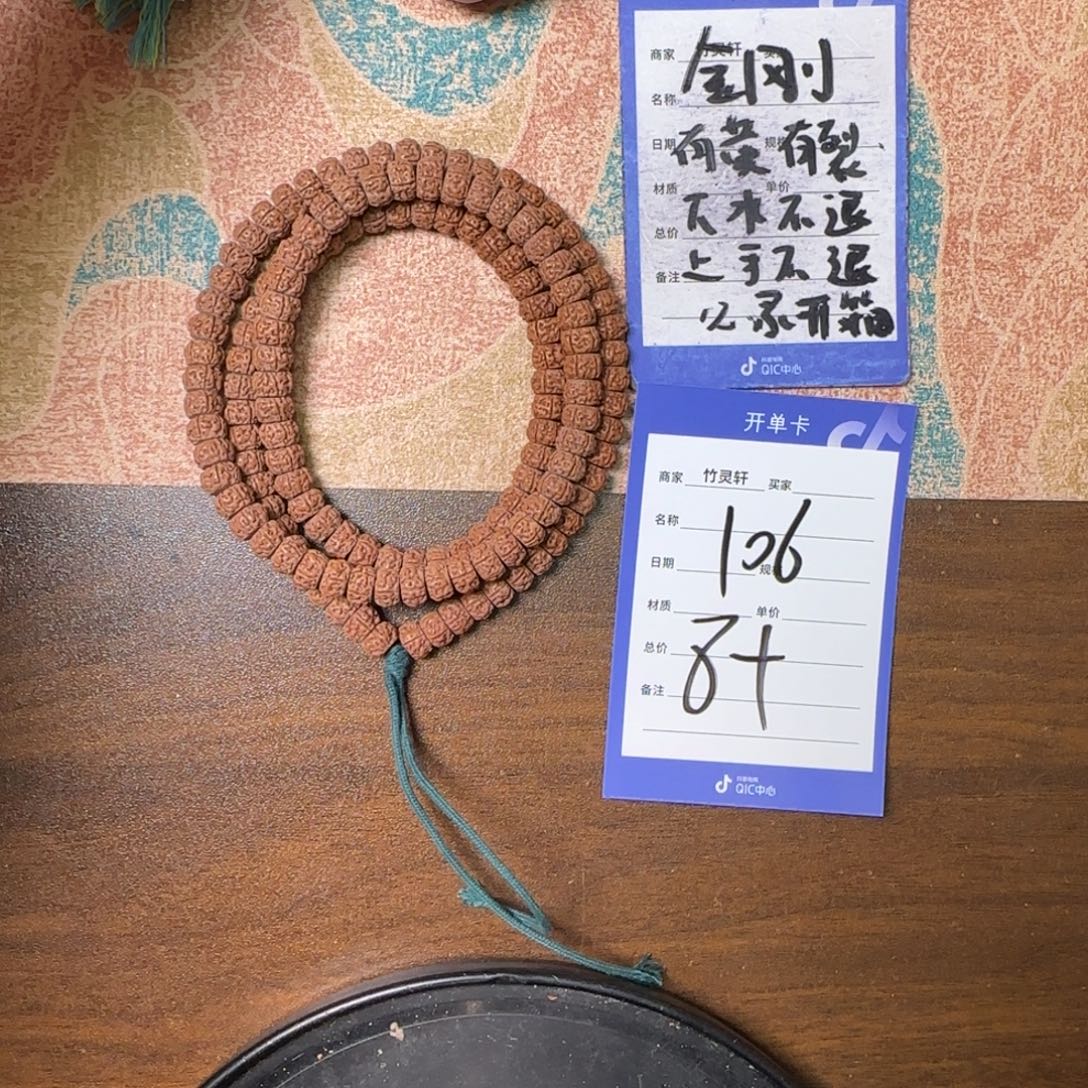 商家 竹灵轩
金刚
名称
日期 规格
有黄有裂
材质 单价
下水不退
总价
上手不退
备注
必录开箱
抖音电商
QIC中心
开单卡
商家 竹灵轩 买家
名称
106
日期 规格
材质 单价
总价
备注
抖音电商
QIC中心